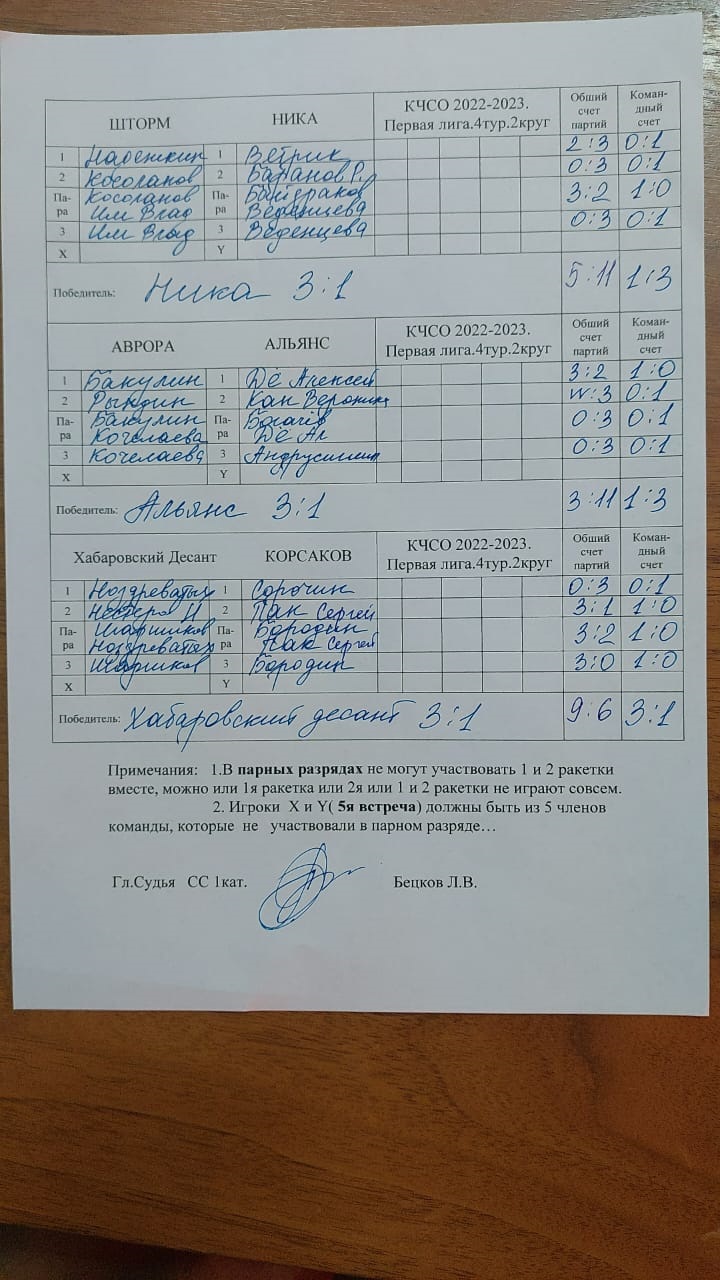 ШТОРМ НИКА КЧСО 2022-2023. Первая лига.4тур.2круг Общий счет партий Коман-дный счет
1 1 Ветрик 2:3 0:1
2 Косолапов 2 Баранов Р. 0:3 0:1
Па-ра Косолапов Па-ра 3:2 1:0
Им Влад Веденцева
3 Им Влад 3 Веденцева 0:3 0:1
X Y
Победитель: Ника 3:1 5:11 1:3
АВРОРА АЛЬЯНС КЧСО 2022-2023. Первая лига.4тур.2круг Общий счет партий Коман-дный счет
1 Бакулин 1 Дё Алексей 3:2 1:0
2 Рындин 2 Кан Вероника w:3 0:1
Па-ра Бакулин Па-ра 0:3 0:1
Кочелаева Дё Ал
3 Кочелаева 3 0:3 0:1
X Y
Победитель: Альянс 3:1 3:11 1:3
Хабаровский Десант КОРСАКОВ КЧСО 2022-2023. Первая лига.4тур.2круг Общий счет партий Коман-дный счет
1 Ноздреватых 1 Сорочин 0:3 0:1
2 2 Пак Сергей 3:1 1:0
Па-ра Шаршиков Па-ра Бородин 3:2 1:0
Ноздреватых Пак Сергей
3 Шаршиков 3 Бородин 3:0 1:0
X Y
Победитель: Хабаровский десант 3:1 9:6 3:1
Примечания: 1.В парных разрядах не могут участвовать 1 и 2 ракетки
вместе, можно или 1я ракетка или 2я или 1 и 2 ракетки не играют совсем.
2. Игроки X и Y( 5я встреча) должны быть из 5 членов
команды, которые не участвовали в парном разряде…
Гл.Судья СС 1кат. Бецков Л.В.